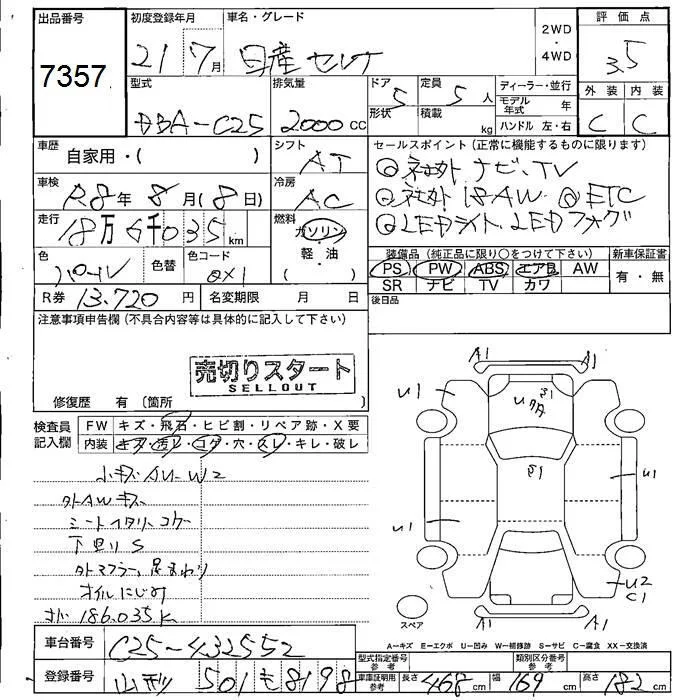 出品番号
7357
初度登録年月
21 7月
車名・グレード
日産 セレナ
2WD
・
4WD
評価点
3.5
型式
DBA-C25
排気量
2000cc
ドア
5
形状
定員
5人
積載
kg
ディーラー・並行
モデル年式 年
ハンドル 左・右
外装 内装
C C
車歴
自家用・( )
シフト
AT
セールスポイント(正常に機能するものに限ります)
◎社外 ナビ、TV
◎社外 18AW ◎ETC
◎LEDライト、LEDフォグ
車検
R8年8月(8日)
冷房
AC
走行
18万6千035km
燃料
ガソリン
軽・油
( )
色
パール
色替
色コード
QX1
装備品(純正品に限り○をつけて下さい)
PS PW ABS エアB AW
SR ナビ TV カワ
新車保証書
有・無
R券 13,720円
名変期限 月 日
後日品
注意事項申告欄(不具合内容等は具体的に記入して下さい)
売切りスタート
SELLOUT
修復歴 有(箇所
検査員
記入欄
FW キズ・飛石・ヒビ割・リペア跡・X要
内装 キズ・汚レ・コゲ・穴・スレ・キレ・破レ
小キズ AU-W2
外AWキズ
シートイタリ、コゲ
下回り S
外マフラー、足まわり
オイルにじみ
オド 186,035K
A1
A1
U1
S1
S1
U1
U1
U2
C1
A1
A1
スペア
A-キズ E-エクボ U-凹み W-補修跡 S-サビ C-腐食 XX-交換済
車台番号
C25-432552
登録番号
501 も 8198
型式指定番号
参考
類別区分番号
参考
車庫証明用
参考
長さ 468cm
幅 169cm
高さ 182cm